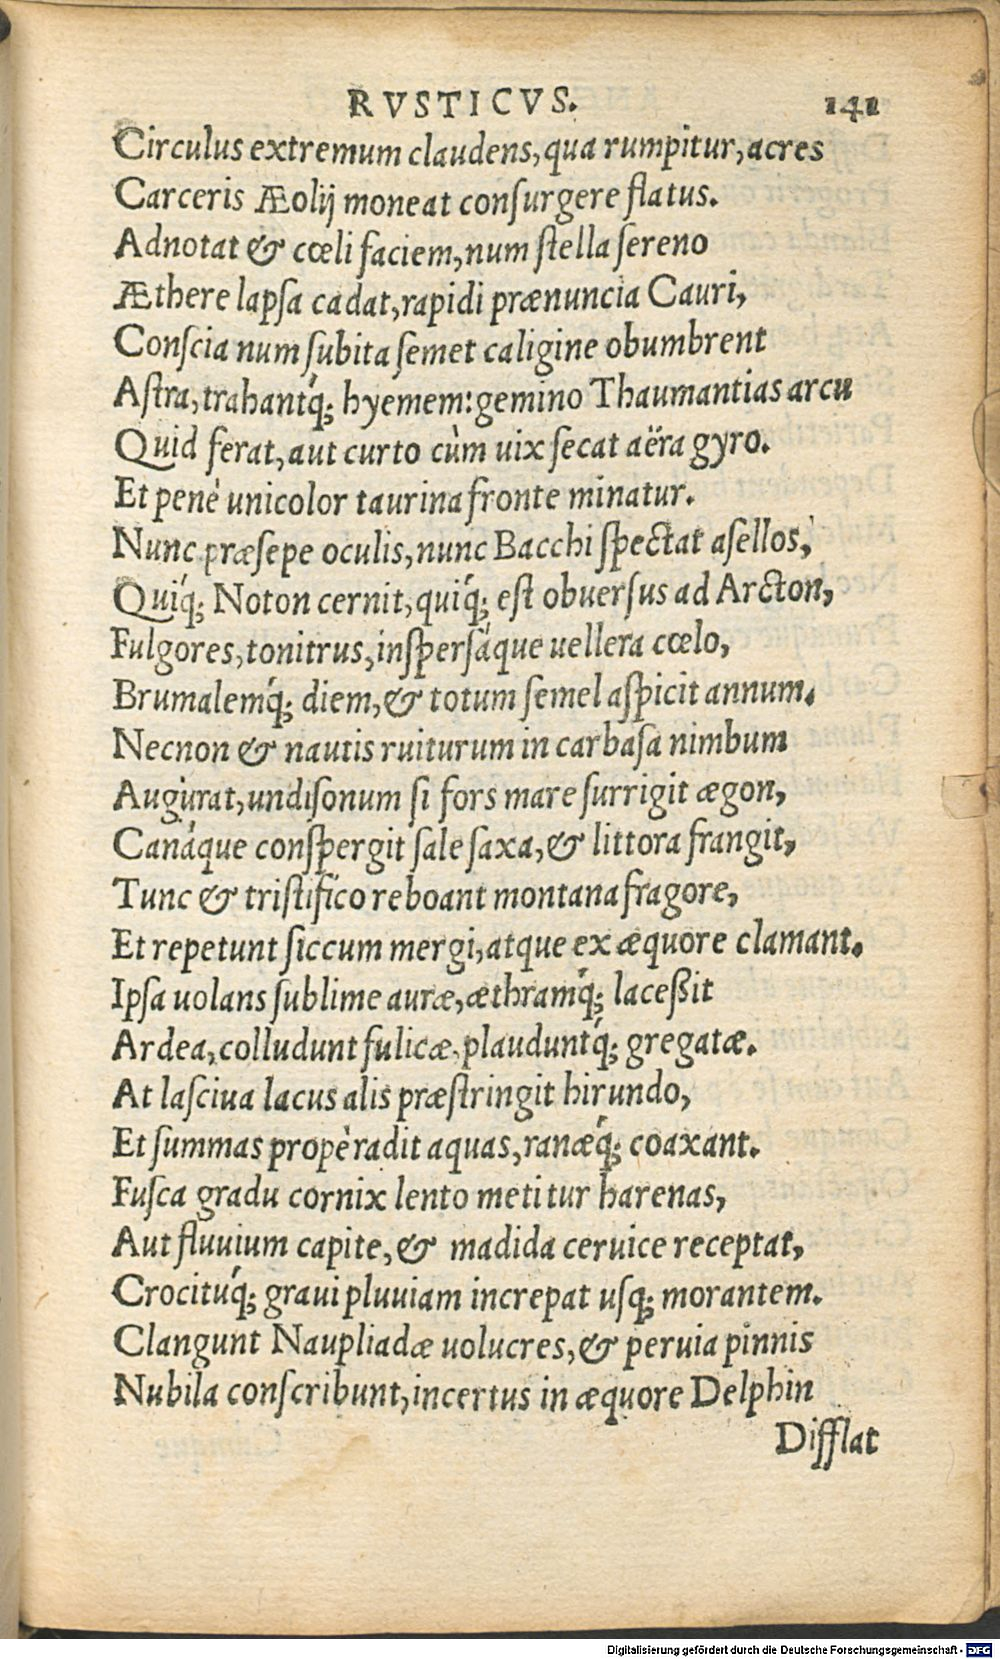 RVSTICVS. 141
Circulus extremum claudens, qua rumpitur, acres
Carceris Æolij moneat conſurgere flatus.
Adnotat & cœli faciem, num ſtella ſereno
Æthere lapſa cadat, rapidi prænuncia Cauri,
Conſcia num ſubita ſemet caligine obumbrent
Aſtra, trahantq́; hyemem: gemino Thaumantias arcu
Quid ferat, aut curto cùm uix ſecat aëra gyro.
Et penè unicolor taurina fronte minatur.
Nunc præſepe oculis, nunc Bacchi ſpectat aſellos,
Quiq́; Noton cernit, quiq́; eſt obuerſus ad Arcton,
Fulgores, tonitrus, inſperſáque uellera cœlo,
Brumalemq́; diem, & totum ſemel aſpicit annum.
Necnon & nautis ruiturum in carbaſa nimbum
Augurat, undiſonum ſi fors mare ſurrigit ægon,
Canáque conſpergit ſale ſaxa, & littora frangit,
Tunc & triſtifico reboant montana fragore,
Et repetunt ſiccum mergi, atque ex æquore clamant.
Ipſa uolans ſublime auræ, æthramq́; laceßit
Ardea, colludunt fulicæ, plauduntq́; gregatæ.
At laſciua lacus alis præſtringit hirundo,
Et ſummas propè radit aquas, ranæq́; coaxant.
Fuſca gradu cornix lento metitur harenas,
Aut fluuium capite, & madida ceruice receptat,
Crocituq́; graui pluuiam increpat uſq; morantem.
Clangunt Naupliadæ uolucres, & peruia pinnis
Nubila conſcribunt, incertus in æquore Delphin
Difflat
Digitalisierung gefördert durch die Deutsche Forschungsgemeinschaft - DFG